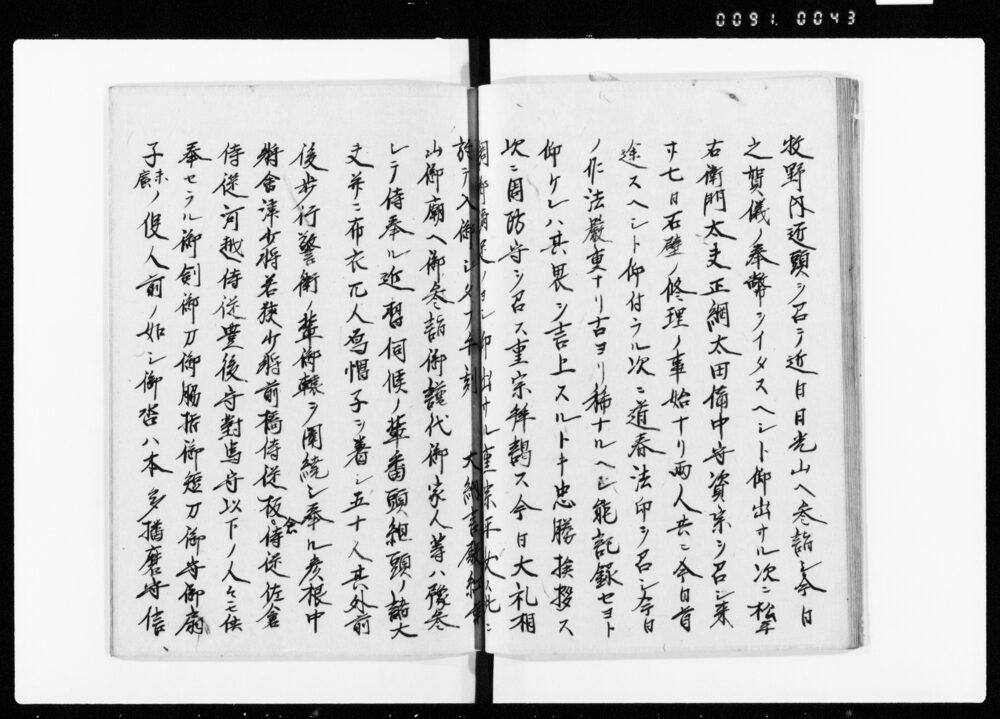 0091.0043
牧野内匠頭ヲ召テ近日日光山ヘ参詣シ今日
之賀儀ノ奉幣ヲイタスヘシト仰出サル次ニ松平
右衛門太夫正綱太田備中守資宗ヲ召シ来
廿七日石壁ノ修理ノ事始ナリ両人共ニ今日首
途スヘシト仰付ラル次ニ道春法印ヲ召シ今日
ノ作法厳重ナリ古ヨリ稀ナルヘシ能記録セヨト
仰ケレハ其畏ヲ言上スルトキ忠勝挨拶ス
次ニ周防守ヲ召ス重宗拝謁ス今日大礼相
調御満足ノヨシ仰出サル重宗平伏
於テ入御シタマフ 刻 大納言
山御廟ヘ御参詣御譜代御家人等ハ豫参
シテ侍奉ル近習伺候ノ輩番頭組頭ノ諸大
夫并ニ布衣冗人烏帽子ヲ着シ五十人其外前
後歩行警衛ノ輩御轅ヲ圍繞シ奉ル彦根中
将会津少将若狭少将前橋侍従板倉侍従佐倉
侍従河越侍従豊後守對馬守以下ノ人々モ供
奉セラル御剣御刀御脇指御短刀御守御扇
子未廣ノ役人前ノ如シ御沓ハ本多播磨守信